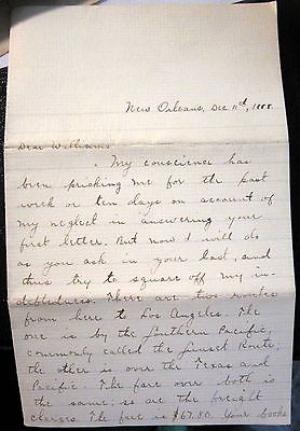 New Orleans, Dec 11th, 1888.
Dear Williams
My conscience has
been pricking me for the past
week or ten days on account of
my neglect in answering your
first letter. But now I will do
as you ask in your last, and
thus try to square off my in-
debtedness. There are two routes
from here to Los Angeles. The
one is by the Southern Pacific,
commonly called the Sunset Route,
the other is over the Texas and
Pacific. The fare over both is
the same, so are the freight
charges. The fare is $67.80. Your books